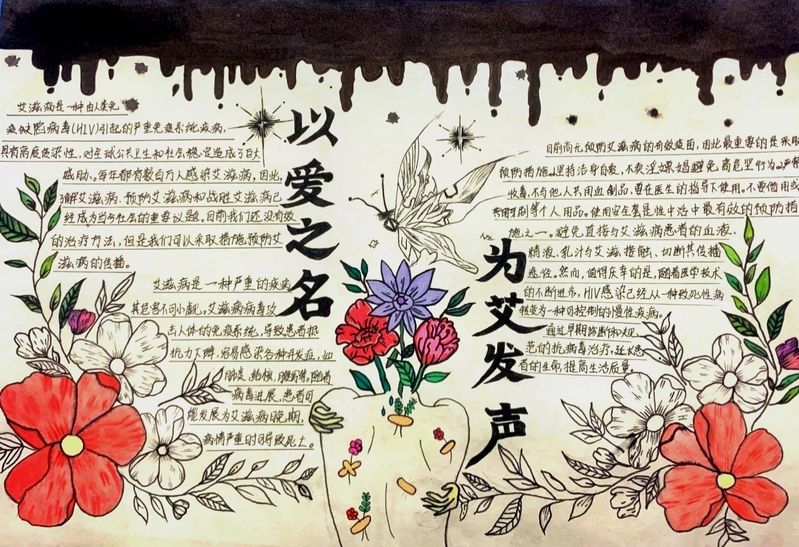 以爱之名
为艾发声
艾滋病是一种由人类免
疫缺陷病毒(HIV)引起的严重免疫系统疾病,
具有高度传染性,对全球公共卫生和社会稳定造成了巨大
威胁。每年都有数百万人感染艾滋病,因此,
了解艾滋病、预防艾滋病和战胜艾滋病已
经成为当今社会的重要议题。目前我们还没有有效
的治疗方法,但是我们可以采取措施预防艾
滋病的传播。
艾滋病是一种严重的疾病
其危害不可小觑。艾滋病病毒攻
击人体的免疫系统,导致患者抵
抗力下降,容易感染各种并发症,如
肺炎、结核、
病毒进展,患者可
能发展为艾滋病晚期,
病情严重时可导致死亡。
目前尚无预防艾滋病的有效疫苗,因此最重要的是采取
预防措施。坚持洁身自爱,不卖淫嫖娼避免高危性行为。严禁
吸毒,不与他人共用血制品,要在医生的指导下使用。不要借用或
共用牙刷等个人用品。使用安全套是性生活中最有效的预防措
施之一。避免直接与艾滋病患者的血液、
精液、乳汁与艾滋接触、切断其传播
途径。然而,值得庆幸的是,随着医学技术
的不断进步,HIV感染已经从一种致死性病
转变为一种可控制的慢性疾病。
通过早期诊断和规
范的抗病毒治疗,延长患
者的生命,提高生活质量。